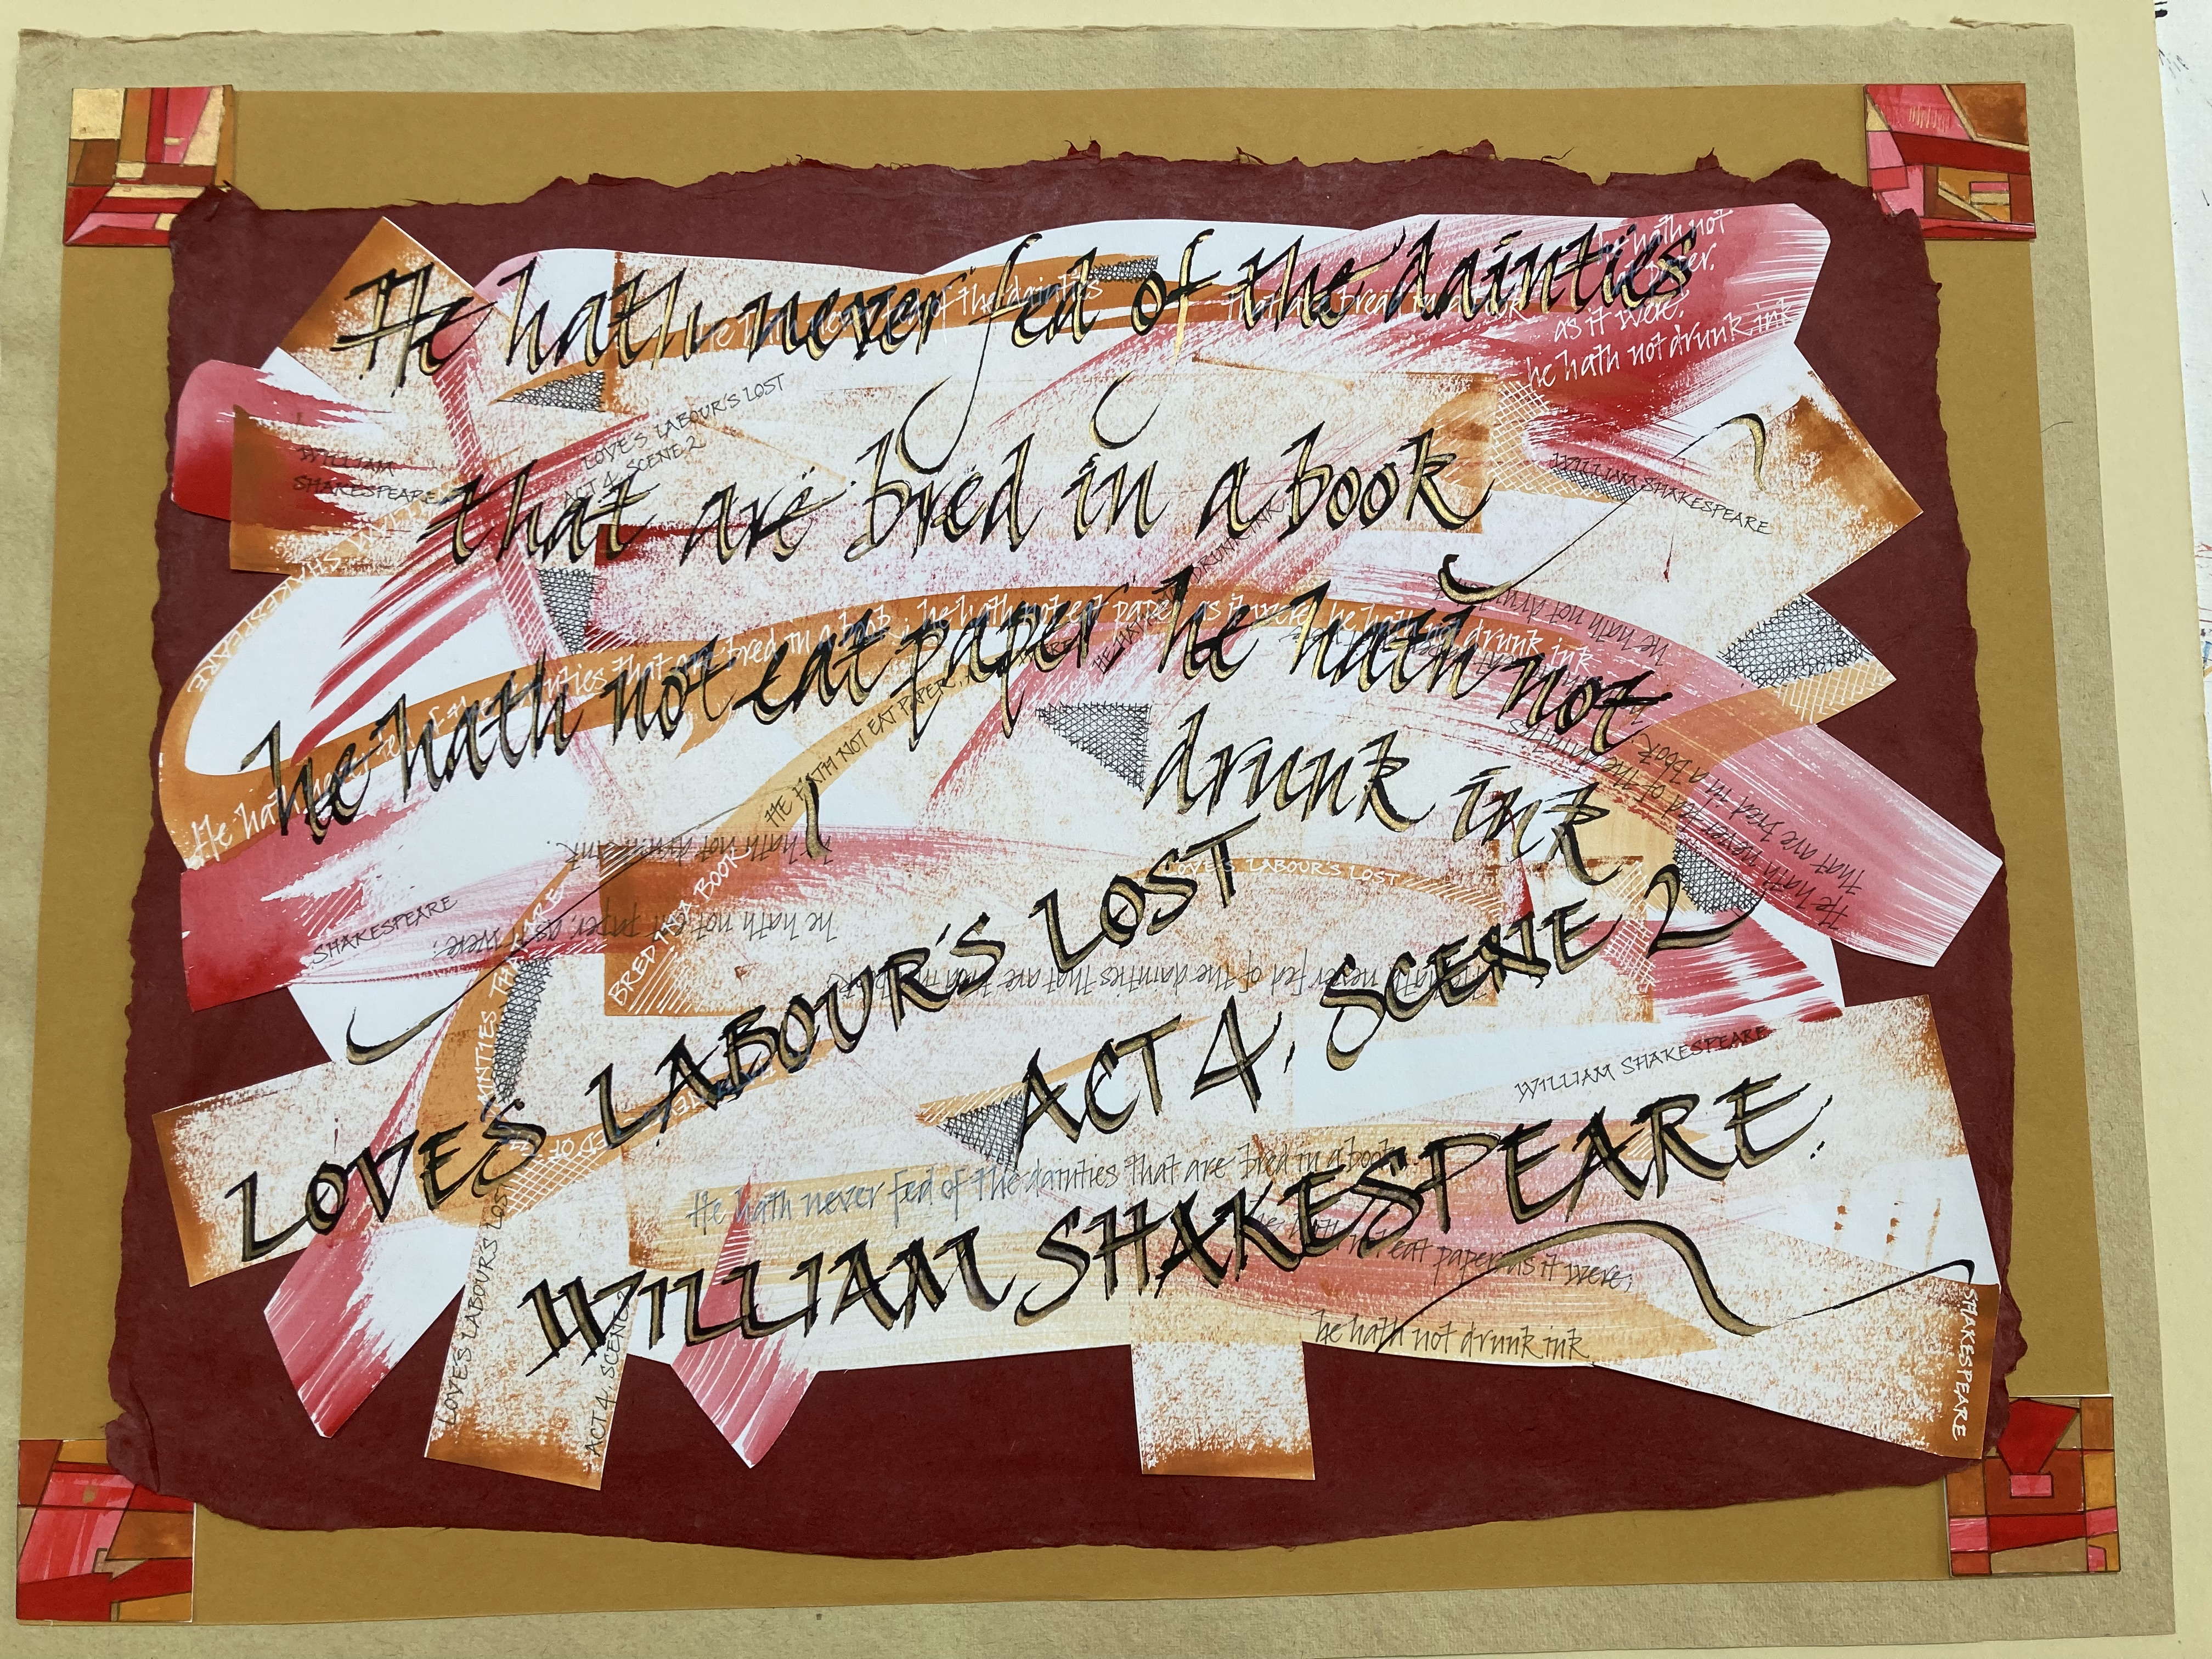 He hath never fed of the dainties
that are bred in a book
he hath not eat paper he hath not
drunk ink
LOVE'S LABOUR'S LOST
ACT 4, SCENE 2
WILLIAM SHAKESPEARE
he hath not
paper,
as it were,
he hath not drunk ink
of the dainties
LOVE'S LABOUR'S LOST
ACT 4, SCENE 2
WILLIAM
SHAKESPEARE
WILLIAM SHAKESPEARE
SHAKESPEARE
bred in a book, he hath not eat paper as it were, he hath not drunk ink
HE HATH NOT EAT PAPER,
DRUNK INK
he hath not drunk
He hath never fed of the dainties
that are bred in a book.
he hath not drunk ink.
he hath not eat paper, as it were,
SHAKESPEARE
BRED IN A BOOK
DAINTIES THAT ARE
LOVE'S LABOUR'S LOST
never fed of the dainties that are bred in
WILLIAM SHAKESPEARE
He hath never fed of the dainties that are bred in a book
he hath not eat paper as it were,
he hath not drunk ink
LOVE'S LABOURS LOST
ACT 4, SCENE 2
SHAKESPEARE